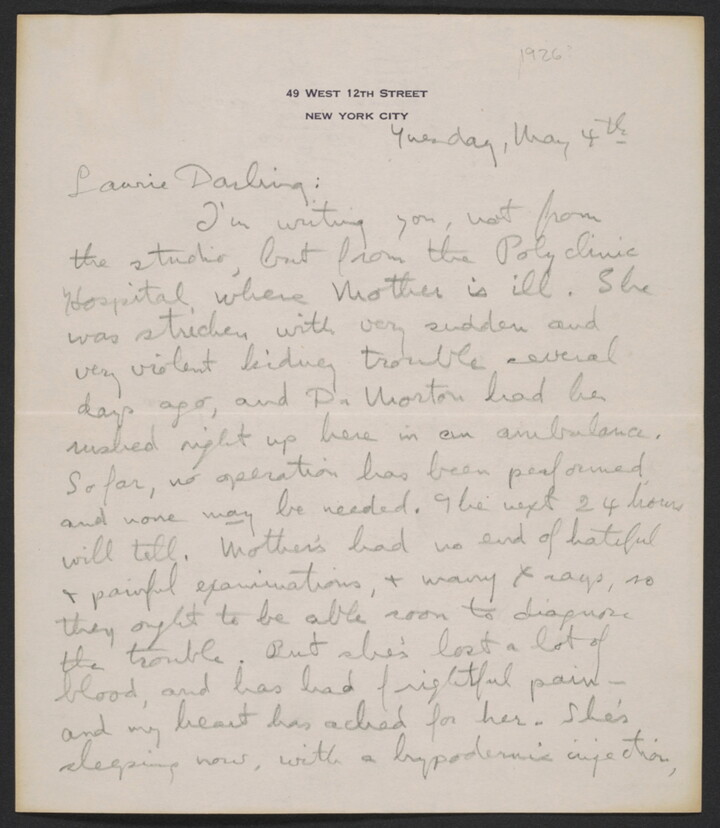 1926
49 WEST 12TH STREET
NEW YORK CITY
Tuesday, May 4th
Laurie Darling:
I'm writing you, not from
the studio, but from the Polyclinic
Hospital, where Mother is ill. She
was stricken with very sudden and
very violent kidney trouble several
days ago, and Dr Morton had her
rushed right up here in an ambulance.
So far, no operation has been performed,
and none may be needed. The next 24 hours
will tell. Mother's had no end of hateful
+ painful examinations, + many X rays, so
they ought to be able soon to diagnose
the trouble. But she's lost a lot of
blood, and has had frightful pain—
and my heart has ached for her. She's
sleeping now, with a hypodermic injection,